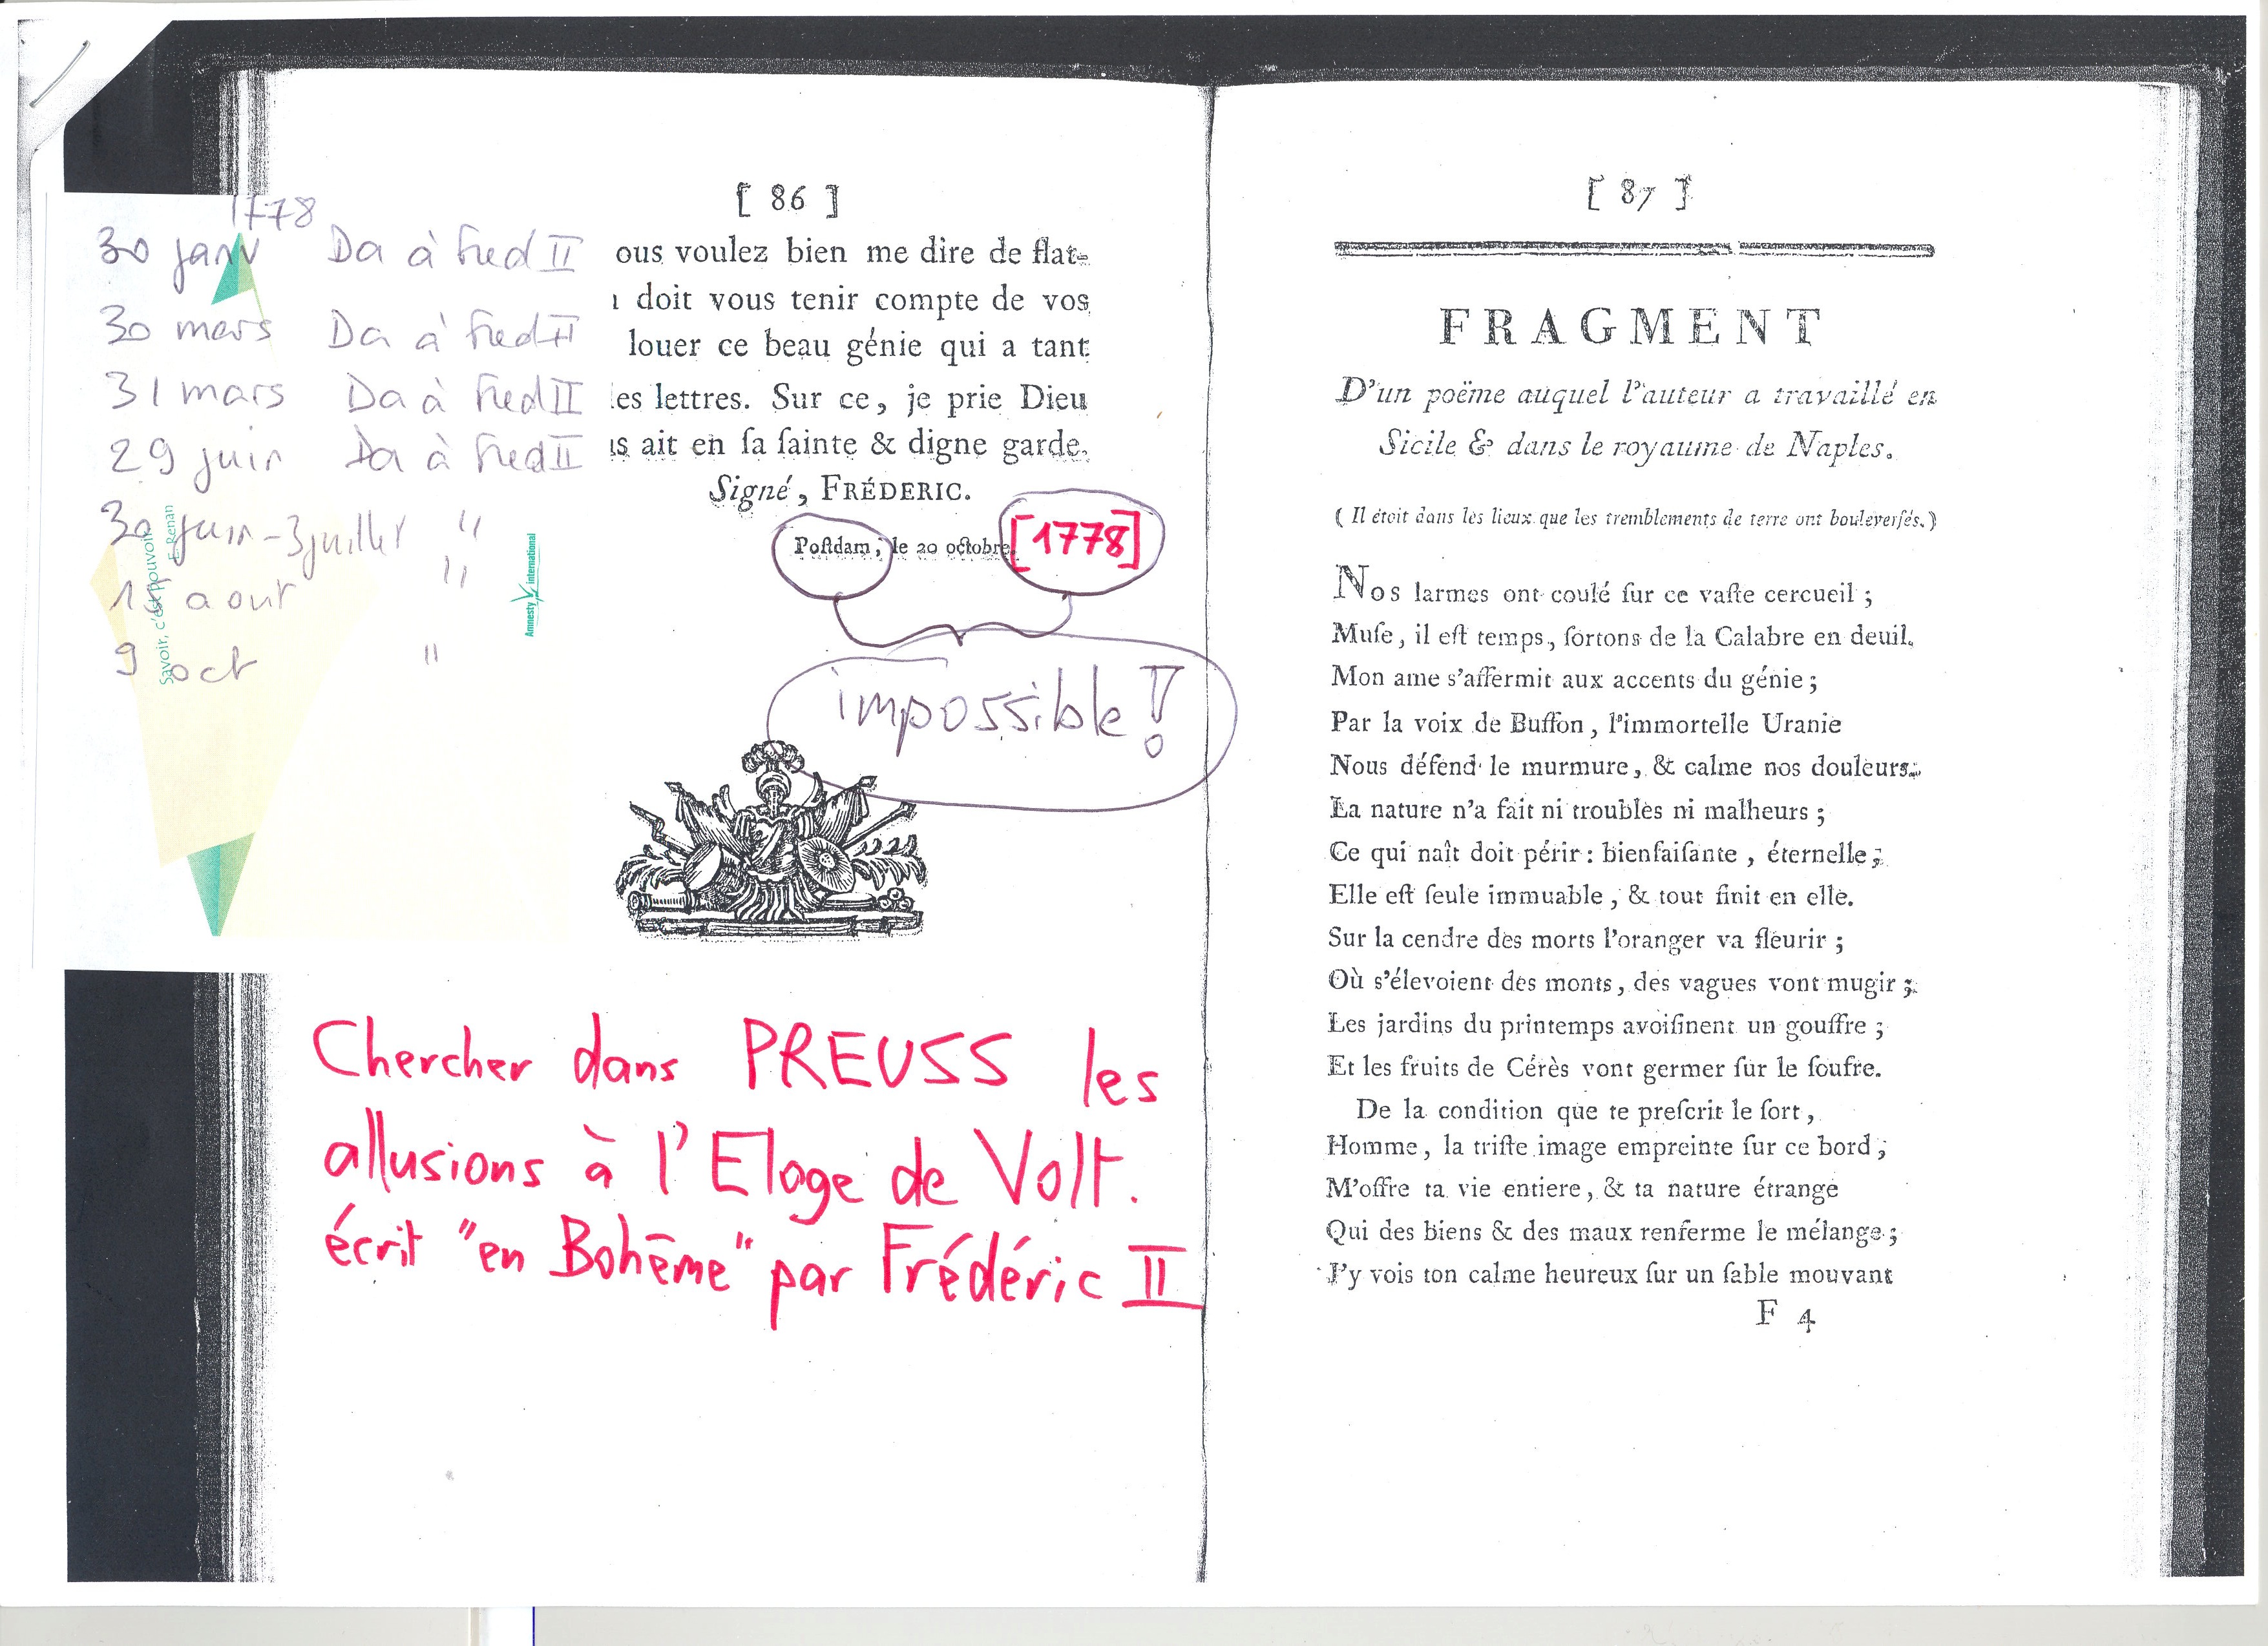 1778
30 janv Da à Fred II
30 mars Da à Fred II
31 mars Da à Fred II
29 juin Da à Fred II
30 juin - 3 juillet "
août "
9 oct "
Savoir, c'est pouvoir
E. Renan
Amnesty international
[ 86 ]
ous voulez bien me dire de flat-
doit vous tenir compte de vos
louer ce beau génie qui a tant
es lettres. Sur ce, je prie Dieu
ait en ſa ſainte & digne garde.
Signé, FRÉDERIC.
Poſtdam, le 20 octobre. [1778]
impossible !
Chercher dans PREUSS les
allusions à l'Eloge de Volt.
écrit "en Bohême" par Frédéric II
[ 87 ]
FRAGMENT
D'un poëme auquel l'auteur a travaillé en
Sicile & dans le royaume de Naples.
( Il étoit dans les lieux que les tremblements de terre ont bouleverſés. )
Nos larmes ont coulé ſur ce vaſte cercueil ;
Muſe, il eſt temps, ſortons de la Calabre en deuil.
Mon ame s'affermit aux accents du génie ;
Par la voix de Buffon, l'immortelle Uranie
Nous défend le murmure, & calme nos douleurs.
La nature n'a fait ni troubles ni malheurs ;
Ce qui naît doit périr : bienfaiſante, éternelle ;
Elle eſt ſeule immuable, & tout finit en elle.
Sur la cendre des morts l'oranger va fleurir ;
Où s'élevoient des monts, des vagues vont mugir ;
Les jardins du printemps avoiſinent un gouffre ;
Et les fruits de Cérès vont germer ſur le ſoufre.
De la condition que te preſcrit le ſort,
Homme, la triſte image empreinte ſur ce bord,
M'offre ta vie entiere, & ta nature étrange
Qui des biens & des maux renferme le mélange ;
J'y vois ton calme heureux ſur un ſable mouvant
F 4